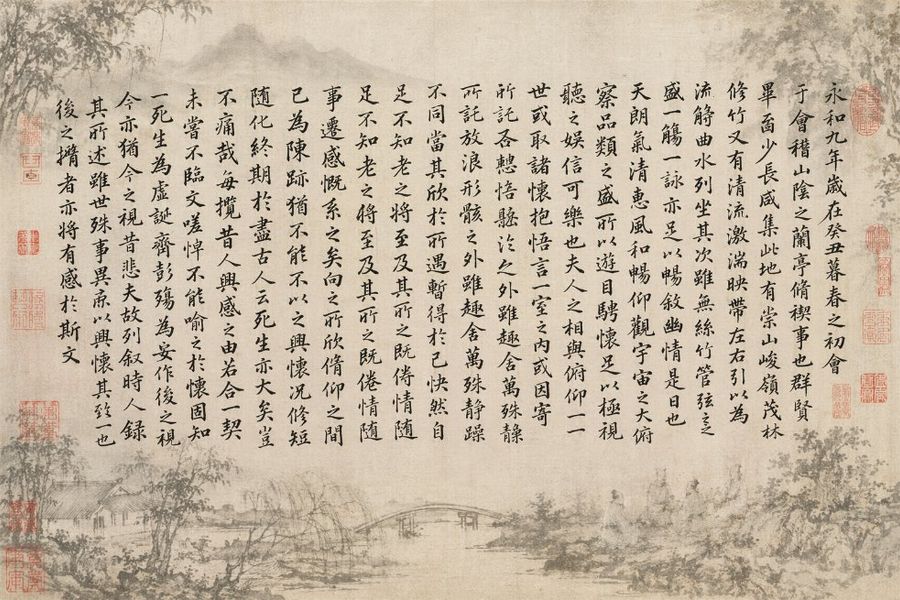 永和九年歲在癸丑暮春之初會
于會稽山陰之蘭亭脩禊事也群賢
畢少長咸集此地有崇山峻嶺茂林
修竹又有清流激湍映帶左右引以為
流觴曲水列坐其次雖無絲竹管弦之
盛一觴一詠亦足以暢敘幽情是日也
天朗氣清惠風和暢仰觀宇宙之大俯
察品類之盛所以遊目騁懷足以極視
聽之娛信可樂也夫人之相與俯仰一一
世或取諸懷抱悟言一室之內或因寄
所託否之外雖趣舍萬殊
所託放浪形骸之外雖趣舍萬殊静躁
不同當其欣於所遇暫得於己快然自
足不知老之將至及其所之既倦情隨
足不知老之將至及其所之既倦情隨
事遷感慨系之矣向之所欣脩仰之間
已為陳跡猶不能不以之興懷況修短
隨化終期於盡古人云死生亦大矣豈
不痛哉每攬昔人興感之由若合一契
未嘗不臨文嗟悼不能喻之於懷固知
一死生為虛誕齊彭殤為妄作後之視
今亦猶今之視昔悲夫故列叙時人録
其所述雖世殊事異以興懷其一也
後之者亦將有感於斯文